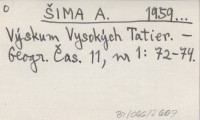 ŠIMA A. 1959...
Výskum Vysokých Tatier. –
Geogr. Čas. 11, nr 1: 72-74.